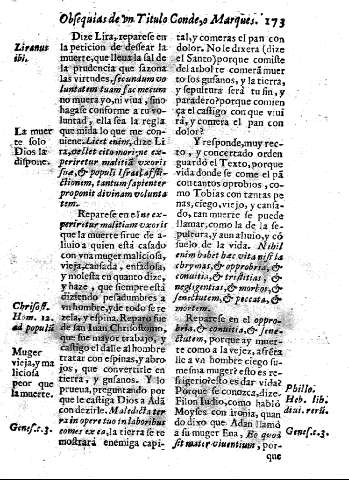 Obsequias de vn Titulo Conde, o Marques. 173
Liranus
ibi.
La muer
te solo
Dios la
dispone.
Chrisost.
Hom. 12.
ad populũ
Muger
vieja, y ma
liciosa
peor que
la muerte.
Genes. c. 3.
Dize Lira, reparese en
la peticion de dessear la
muerte, que llena la sal de
la prudencia que sazona
las virtudes, secundum vo
luntatem tuam fac mecum
no muera yo, ni viua, sino
hagase conforme a tu vo-
luntad, ella sea la regla
que mida lo que me con-
uiene. Licet enim, dize Li
ra, vellet cito mori, ne ex-
periretur malitiã vxoris
suæ, & populi Israel affli-
ctionem, tantum sapienter
proponit diuinam volunta
tem.
Reparese en el ne ex-
periretur malitiam vxoris
que la muerte sirue de a-
liuio a quien está casado
con vna muger maliciosa,
vieja, cansada, enfadosa,
y molesta en quanto dize,
y haze, que siempre está
diziendo pesadumbres a
su hombre, y de todo se re
zela, y espina. Reparo fue
de san Iuan Chrisostomo,
que fue mayor trabajo, y
castigo el darle al hombre
tratar con espinas, y abro
jos, que conuertirle en
tierra, y gusanos. Y lo
prueua, preguntando por
que le castiga Dios a Adã
con dezirle. Maledicta ter
ra in opere tuo in laboribus
comes ex ea, la tierra se te
mostrará enemiga capi-
tal, y comeras el pan con
dolor. No le dixera (dize
el Santo) porque comiste
del arbol te comerã muer
to los gusanos, y la tierra,
y sepultura será tu fin, y
paradero? porque comien
ça el castigo con que viui
rá, y comera el pan con
dolor?
Y responde, muy rec-
to, y concertado orden
guardó el Texto, porque
vida donde se come el pã
con tantos oprobios, co-
mo Tobias con tantas pe
nas, ciego, viejo, y cansa-
do, tan muerte se puede
llamar, como la de la se-
pultura, y aun aliuio, y cõ
suelo de la vida. Nihil
enim habet hæc vita nisi la
chrymas, & opprobria, &
conuitia, & tristitias, &
negligentias, & morbos, &
senectutem, & peccata, &
mortem.
Reparese en el oppro-
bria, & conuitia, & senec-
tutem, porque ay muer-
te como a la vejez, afrẽta
lle a vn hombre ciego su-
mesma muger? esto es re-
frigerio? esto es dar vida?
Porque se conozca, dize
Filon Iudio, como habló
Moyses con ironia, quan
do dixo que Adan llamó
a su muger Eua, Eo quòd
sit mater viuentium, por-
que
Phillo.
Heb. lib.
diui. rerũ.
Genes. c. 3.